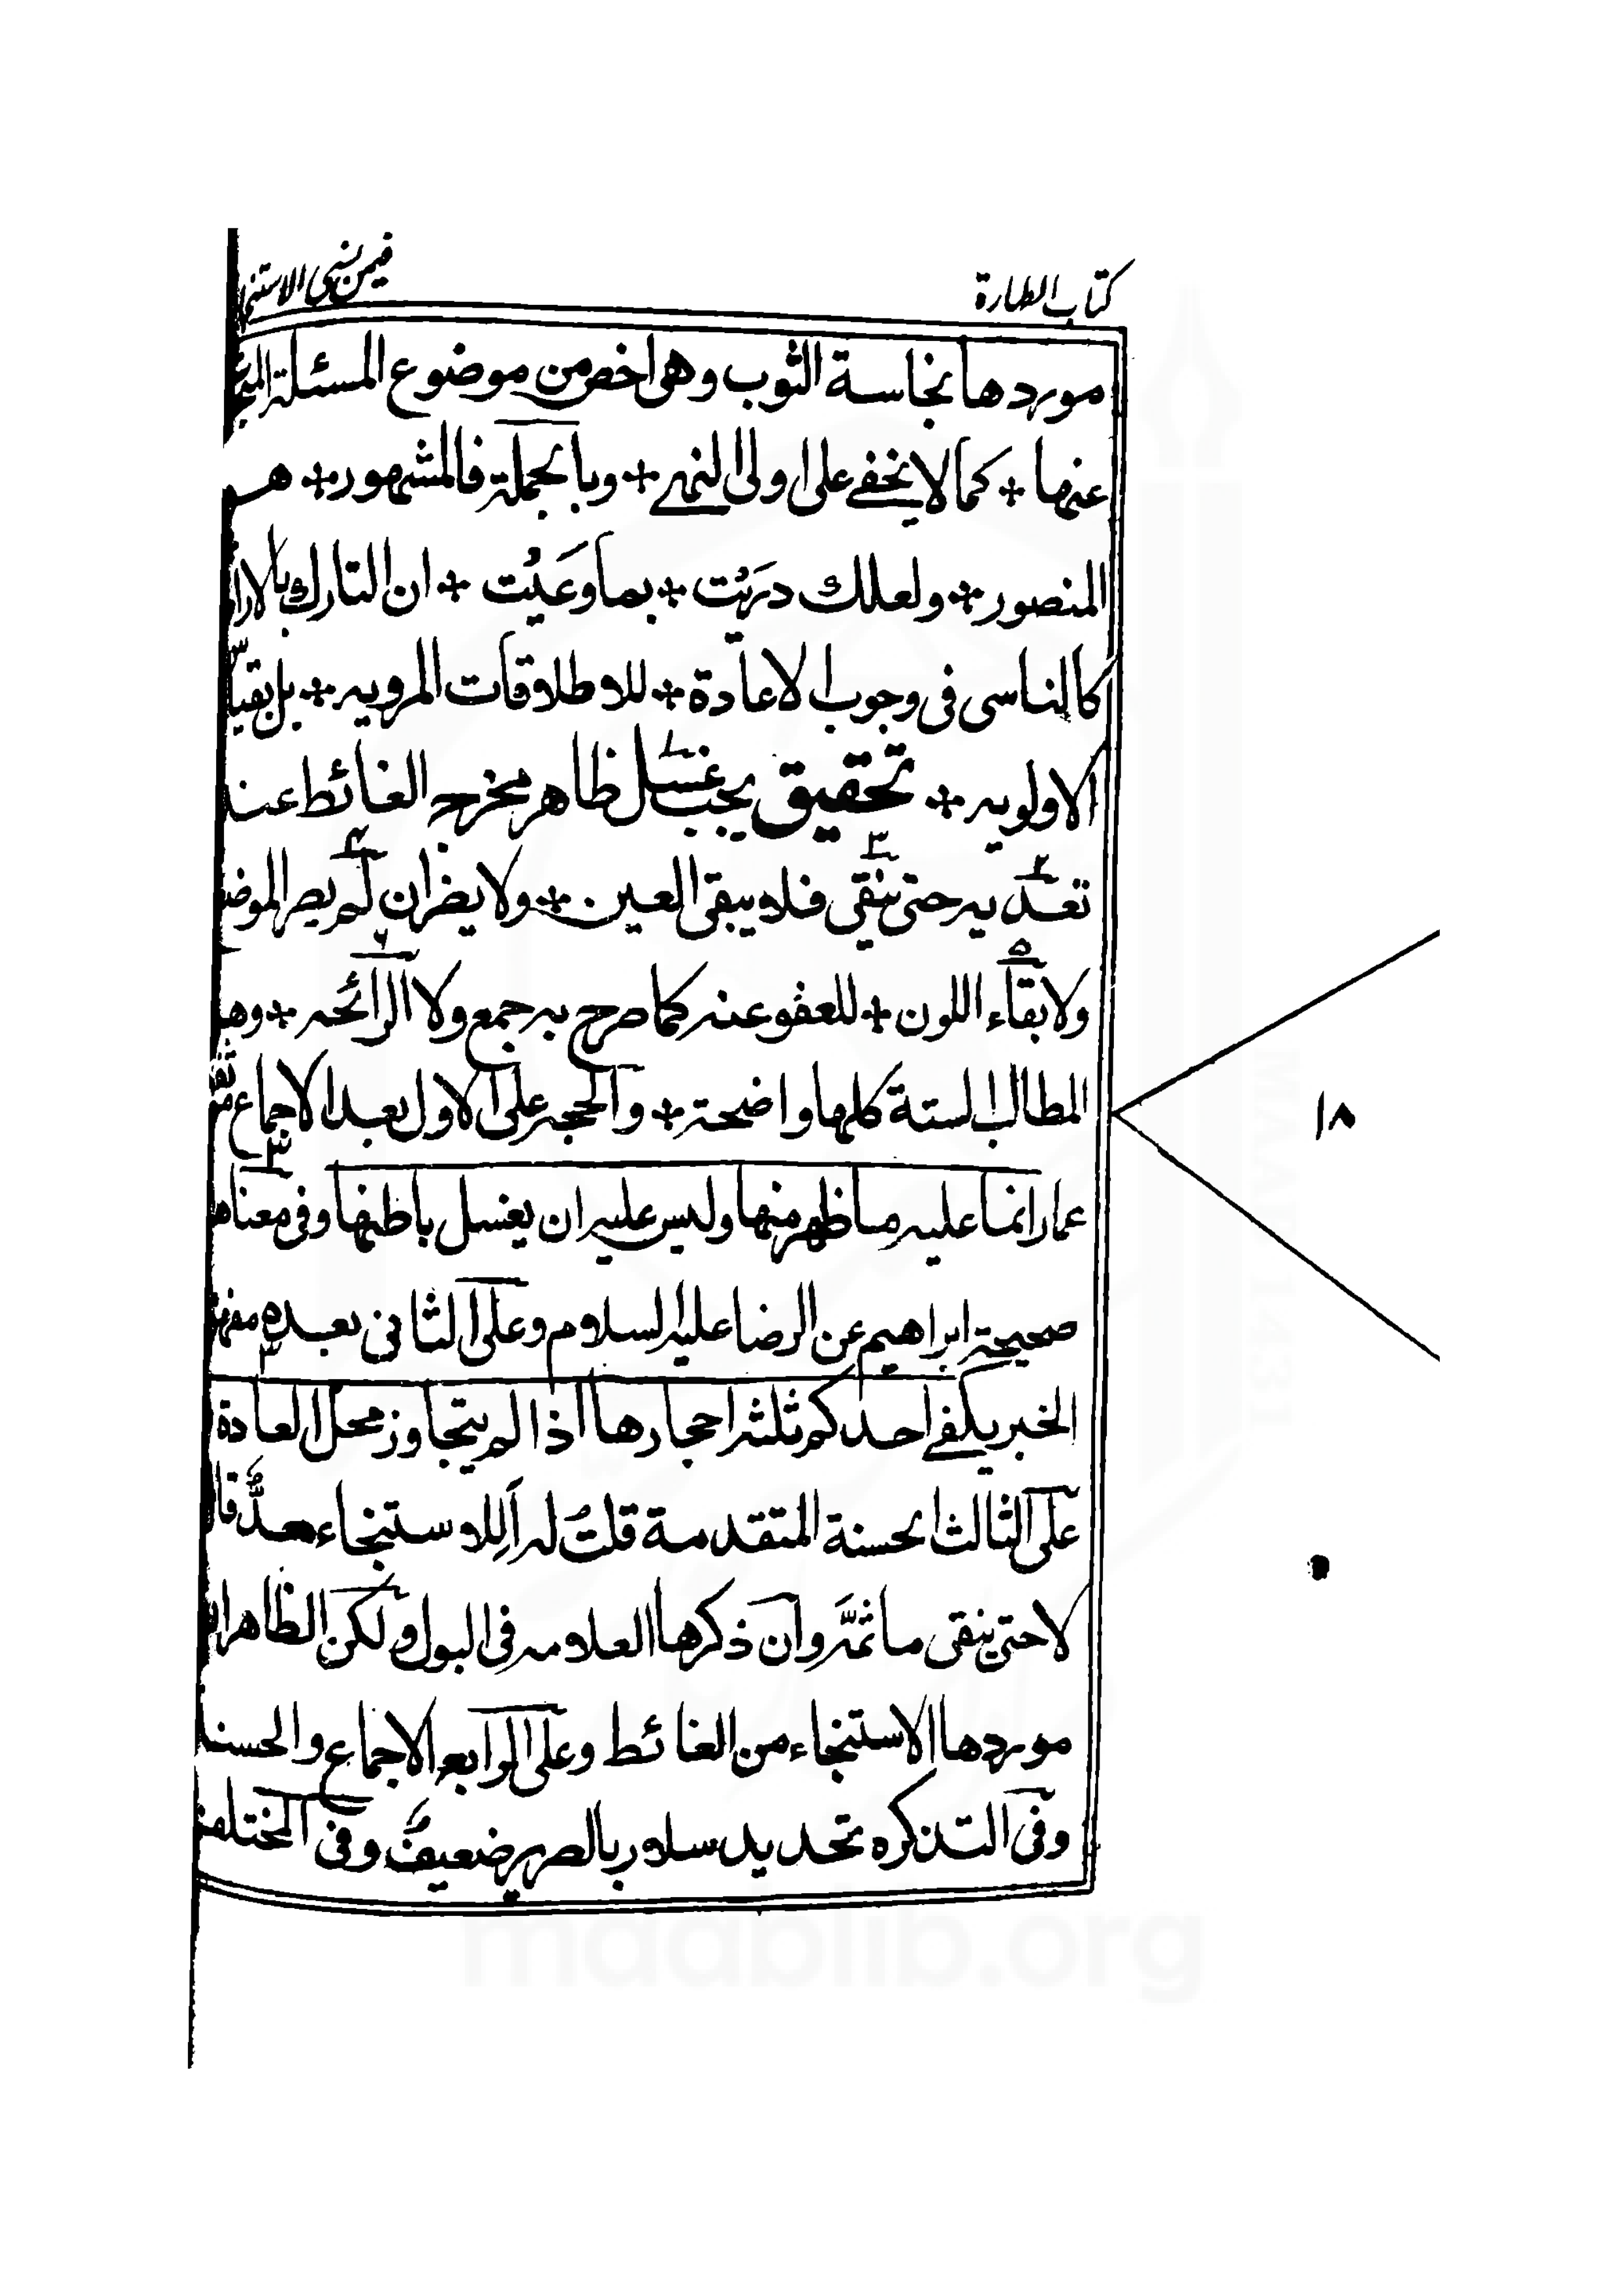 كتاب الطهارة
فيمن نسى الاستنجا
موردها نجاسة الثوب وهى اخص من موضوع المسئلة
عنها + كما لا يخفے على اولى النهے + وبالجملة فالمشهور + هو
المنصور + ولعلك دريت + بما وعيت + ان التارك
كالناسى فى وجوب الاعادة + للاطلاقات المرويه + بل بقياس
الاولويه + تحقيق يجب غسل ظاهر مخرج الغائط عند
تعديه حتى ينقى فلا يبقى العين + ولا يضر ان لم يصر الموضع
ولا بقاء اللون + للعفو عنه كما صرح به جمع ولا الرائحه + وهذه
المطالب الستة كلها واضحة + والحجة على الاول بعد الاجماع
عمار انما عليه ما ظهر منها وليس عليه ان يغسل باطنها وفى معناها
صحيحة ابراهيم عن الرضا عليه السلام وعلى الثانى بعده مفهوم
الخبر يكفے احدكم ثلثة احجارها اذا لم يتجاوز محل العادة
على الثالث الحسنة المتقدمة قلت له أللاستنجاء حدٌّ قال
لا حتى ينقى ما ثمَّه وان ذكرها العلامه فى البول ولكن الظاهر ان
موردها الاستنجاء من الغائط وعلى الرابع الاجماع والحسنة
وفى التذكره تحديد سلار بالصرير ضعيف وفى المختلف
١٨
maablib.org
MAAB 1431